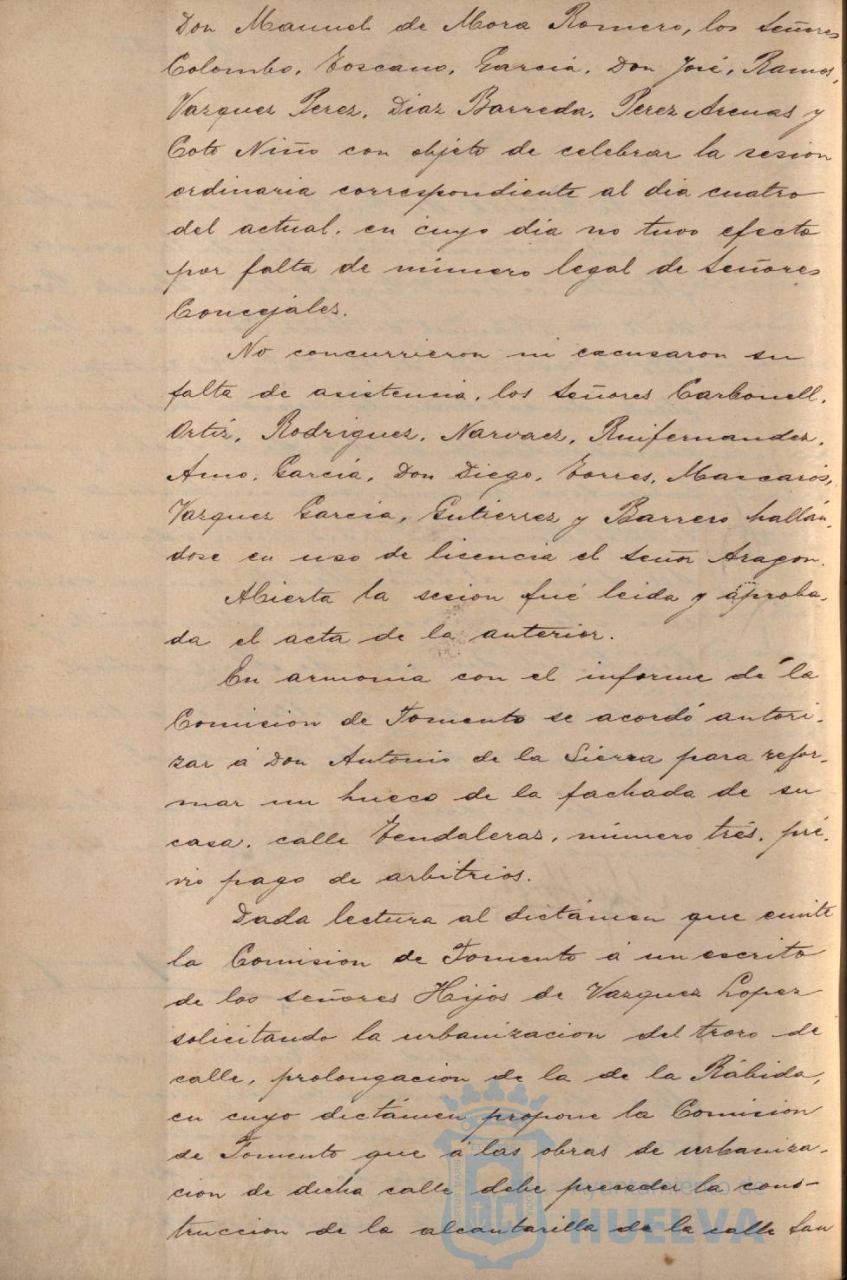 Don Manuel de Mora Romero, los Señores
Colombo, Toscano, García, Don José, Ramos,
Vazquez Perez, Diaz Barreda, Perez Arenas y
Coto Niño con objeto de celebrar la sesion
ordinaria correspondiente al dia cuatro
del actual, en cuyo dia no tuvo efecto
por falta de número legal de Señores
Concejáles.
No concurrieron ni escusaron su
falta de asistencia, los Señores Carbonell,
Ortíz, Rodriguez, Narvaez, Ruifernandez,
Amo, García, Don Diego, Torres, Mascarós,
Vazquez García, Gutierrez y Barrero hallán-
dose en uso de licencia el Señor Aragon.
Abierta la sesion fué leida y aproba-
da el acta de la anterior.
En armonia con el informe de la
Comision de Fomento se acordó autori-
zar á Don Antonio de la Sierra para refor-
mar un hueco de la fachada de su
casa, calle Tendaleras, número trés, pré-
vio pago de arbitrios.
Dada lectura al dictámen que emite
la Comision de Fomento á un escrito
de los Señores Hijos de Vazquez Lopez
solicitando la urbanizacion del trozo de
calle, prolongacion de la de la Rábida,
en cuyo dictámen propone la Comision
de Fomento que á las obras de urbaniza-
cion de dicha calle debe preceder la cons-
truccion de la alcantarilla de la calle San
HUELVA